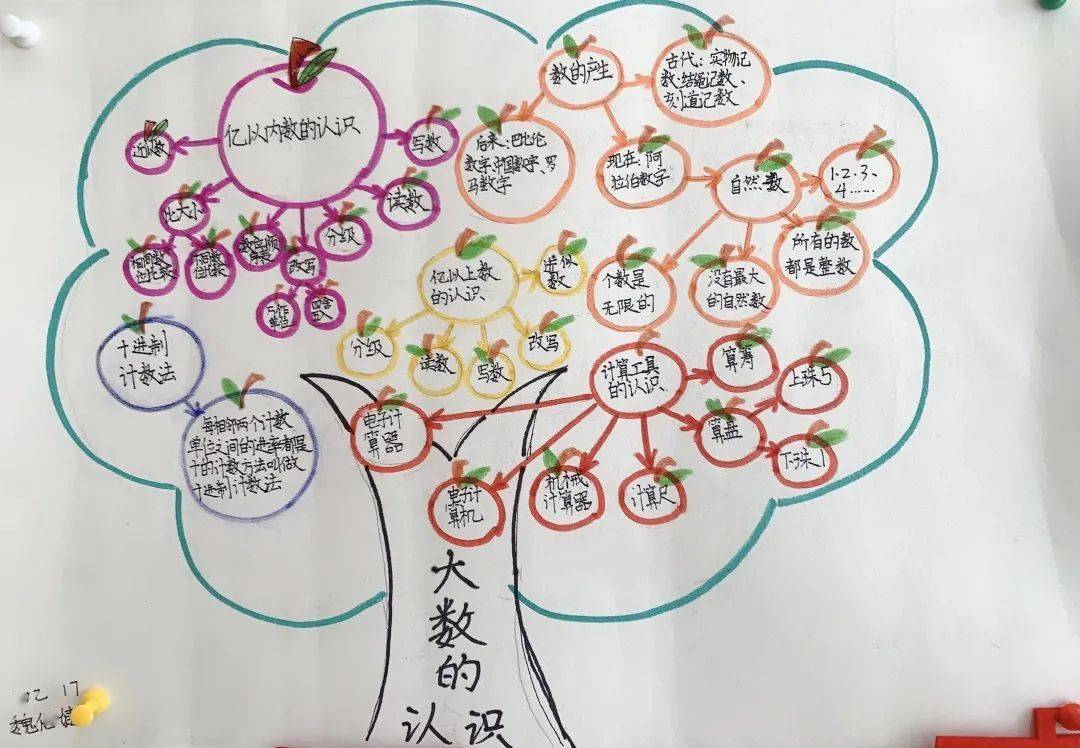 亿以内数的认识
近似数
写数
读数
分级
改写
比大小
相同数
位比较
不同数
位比较
万作
单位
数的产生
古代：实物记
数、结绳记数、
刻道记数
后来：巴比伦
数字、中国数字、罗
马数字
现在：阿
拉伯数字
自然数
1、2、3、
4……
所有的数
都是整数
没有最大
的自然数
个数是
无限的
亿以上数
的认识
进似
数
分级
读数
写数
改写
十进制
计数法
每相邻两个计数
单位之间的进率都是
十的计数方法叫做
十进制计数法
计算工具
的认识
算筹
算盘
上珠5
下珠1
计算尺
机械
计算器
电子计
算机
电子计
算器
大
数
的
认识
17